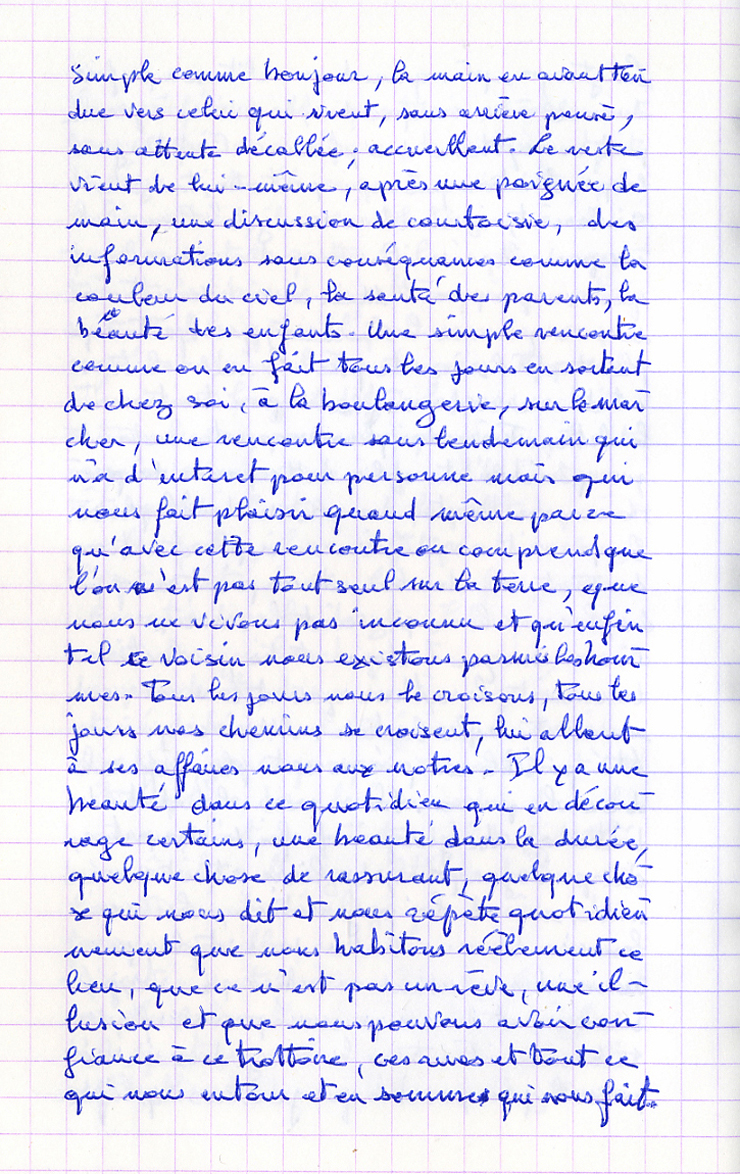 Simple comme bonjour, la main en avant ten
due vers celui qui vient, sans arrière pensée,
sans attente décallée, accueillant. Le reste
vient de lui-même, après une poignée de
main, une discussion de courtoisie, des
informations sans conséquances comme la
couleur du ciel, la santé des parents, la
béauté des enfants. Une simple rencontre
comme on en fait tous les jours en sortant
de chez soi, à la boulangerie, sur le mar
cher, une rencontre sans lendemain qui
n'a d'interet pour personne mais qui
nous fait plaisir quand même parce
qu'avec cette rencontre on comprend que
l'on n'est pas tout seul sur la terre, que
nous ne vivons pas inconnu et qu'enfin
tel ce voisin nous existons parmis les hom
mes. Tous les jours nous le croisons, tous les
jours nos chemins se croisent, lui allant
à ses affaires nous aux notres. Il y a une
beauté dans ce quotidien qui en décou
rage certains, une beauté dans la durée,
quelque chose de rassurant, quelque cho
se qui nous dit et nous répète quotidien
nement que nous habitons réellement ce
lieu, que ce n'est pas un rêve, une il-
lusion et que nous pouvons avoir con
fiance à ce trottoire, ces rues et tout ce
qui nous entour et en sommes qui nous fait.